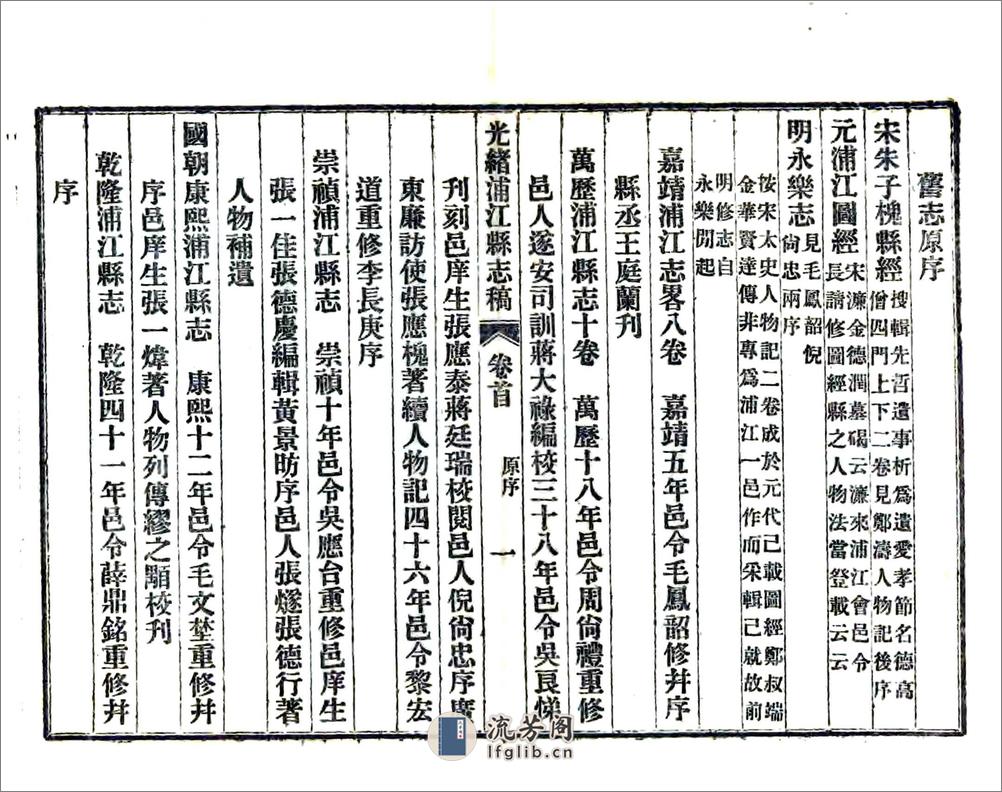 舊志原序
宋朱子槐縣經搜輯先哲遺事析爲遺愛孝節名德高
僧四門上下二卷見鄭濤人物記後序
元浦江圖經宋濂金德潤墓碣云濂來浦江會邑令
長請修圖經縣之人物法當登載云云
明永樂志見毛鳳韶倪
尙忠兩序
按宋太史人物記二卷成於元代已載圖經鄭叔端
金華賢達傳非專爲浦江一邑作而采輯已就故前
明修志自
永樂開起
嘉靖浦江志畧八卷 嘉靖五年邑令毛鳳韶修幷序
縣丞王庭蘭刊
萬歷浦江縣志十卷 萬歷十八年邑令周尙禮重修
邑人遂安司訓蔣大祿編校三十八年邑令吳良悌
光緒浦江縣志稿 卷首 原序 一
刊刻邑庠生張應泰蔣廷瑞校閱邑人倪尙忠序廣
東廉訪使張應槐著續人物記四十六年邑令黎宏
道重修李長庚序
崇禎浦江縣志 崇禎十年邑令吳應台重修邑庠生
張一佳張德慶編輯黃景昉序邑人張燧張德行著
人物補遺
國朝康熙浦江縣志 康熙十二年邑令毛文埜重修幷
序邑庠生張一煒著人物列傳繆之顒校刊
乾隆浦江縣志 乾隆四十一年邑令薛鼎銘重修幷
序
流芳閣
lfglib.cn